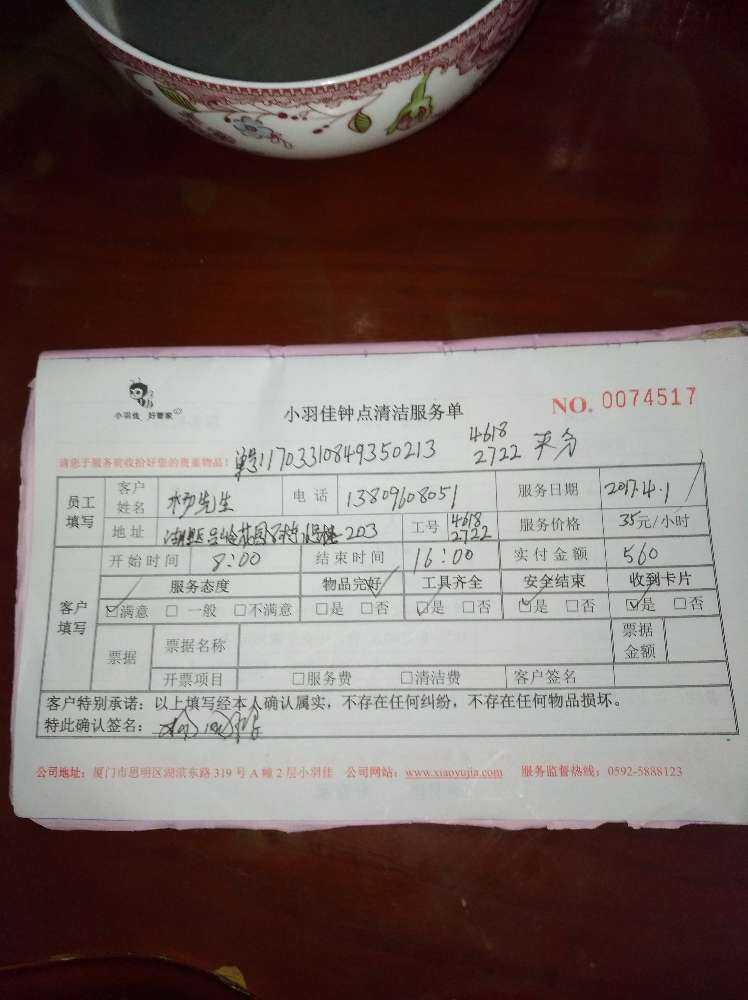 小羽佳 好管家
小羽佳钟点清洁服务单
NO. 0074517
请您于服务前收拾好您的贵重物品!
单号:1703310849350213
4618
2722 平分
员工填写 客户姓名 杨先生 电话 13809608051 服务日期 2017.4.1
地址 花园 203 工号 4618 2722 服务价格 35元/小时
客户填写 开始时间 8:00 结束时间 16:00 实付金额 560
服务态度 物品完好 工具齐全 安全结束 收到卡片
☑满意 □一般 □不满意 □是 □否 ☑是 □否 ☑是 □否 ☑是 □否
票据 票据名称 票据金额
开票项目 □服务费 □清洁费 客户签名
客户特别承诺:以上填写经本人确认属实,不存在任何纠纷,不存在任何物品损坏。
特此确认签名:
公司地址:厦门市思明区湖滨东路319号A幢2层小羽佳 公司网站:www.xiaoyujia.com 服务监督热线:0592-5888123